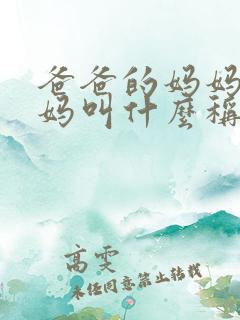 爸爸的妈妈
妈叫什麽称
高雯
未经同意禁止转载